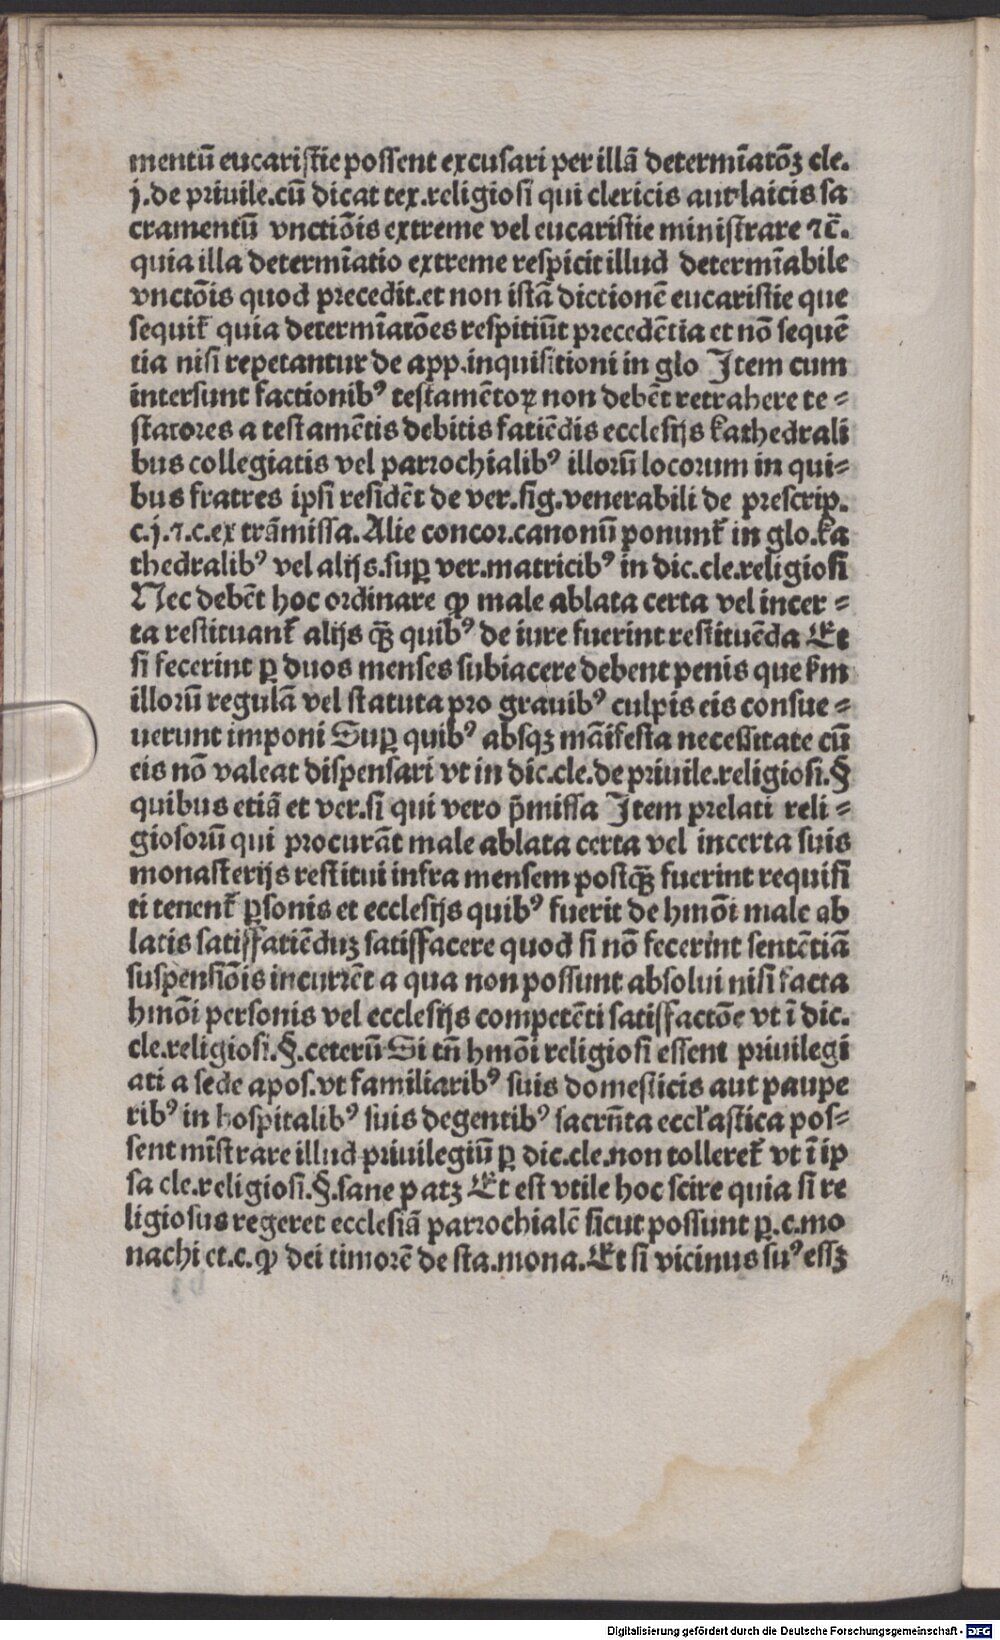 mentū eucaristie possent excusari per illā determīatōꝫ cle.
j. de priuile. cū dicat tex. religiosi qui clericis aut laicis sa
cramentū vnctiōis extreme vel eucaristie ministrare ⁊c̄.
quia illa determīatio extreme respicit illud determīabile
vnctōis quod precedit. et non istā dictionē eucaristie que
sequit᷑ quia determīatōes respitiūt precedētia et nō sequē
tia nisi repetantur de app. inquisitioni in glo Item cum
intersunt factionibꝰ testamētoꝝ non debēt retrahere te⸗
statores a testamētis debitis fatiēdis ecclesijs kathedrali
bus collegiatis vel parrochialibꝰ illorū locorum in qui⸗
bus fratres ipsi residēt de ver. sig. venerabili de prescrip.
c. j. ⁊. c. ex trāmissa. Alie concor. canonū ponunt᷑ in glo. ka
thedralibꝰ vel alijs. suꝑ ver. matricibꝰ in dic. cle. religiosi
Nec debēt hoc ordinare ꝙ male ablata certa vel incer⸗
ta restituant᷑ alijs qꝫ̄ quibꝰ de iure fuerint restituēda Et
si fecerint ꝑ duos menses subiacere debent penis que km
illorū regulā vel statuta pro grauibꝰ culpis eis consue⸗
uerunt imponi Suꝑ quibꝰ absqꝫ māifesta necessitate cū
eis nō valeat dispensari vt in dic. cle. de priuile. religiosi. §
quibus etiā et ver. si qui vero p̄missa Item prelati reli⸗
giosorū qui procurāt male ablata certa vel incerta suis
monasterijs restitui infra mensem postqꝫ̄ fuerint requisi
ti tenent᷑ ꝑsonis et ecclesijs quibꝰ fuerit de hmōi male ab
latis satisfatiēduꝫ satisfacere quod si nō fecerint sentētiā
suspensiōis incurrēt a qua non possunt absolui nisi facta
hmōi personis vel ecclesijs competēti satisfactōe vt ī dic.
cle. religiosi. §. ceterū Si tn̄ hmōi religiosi essent priuilegi
ati a sede apos. vt familiaribꝰ suis domesticis aut paupe
ribꝰ in hospitalibꝰ suis degentibꝰ sacrn̄ta eccl̄astica pos⸗
sent mīstrare illud priuilegiū ꝑ dic. cle. non tolleret᷑ vt ī ip
sa cle. religiosi. §. sane patꝫ Et est vtile hoc scire quia si re
ligiosus regeret ecclesiā parrochialē sicut possunt ꝑ. c. mo
nachi et. c. ꝙ dei timorē de sta. mona. Et si vicinus suꝰ essꝫ
Digitalisierung gefördert durch die Deutsche Forschungsgemeinschaft - DFG